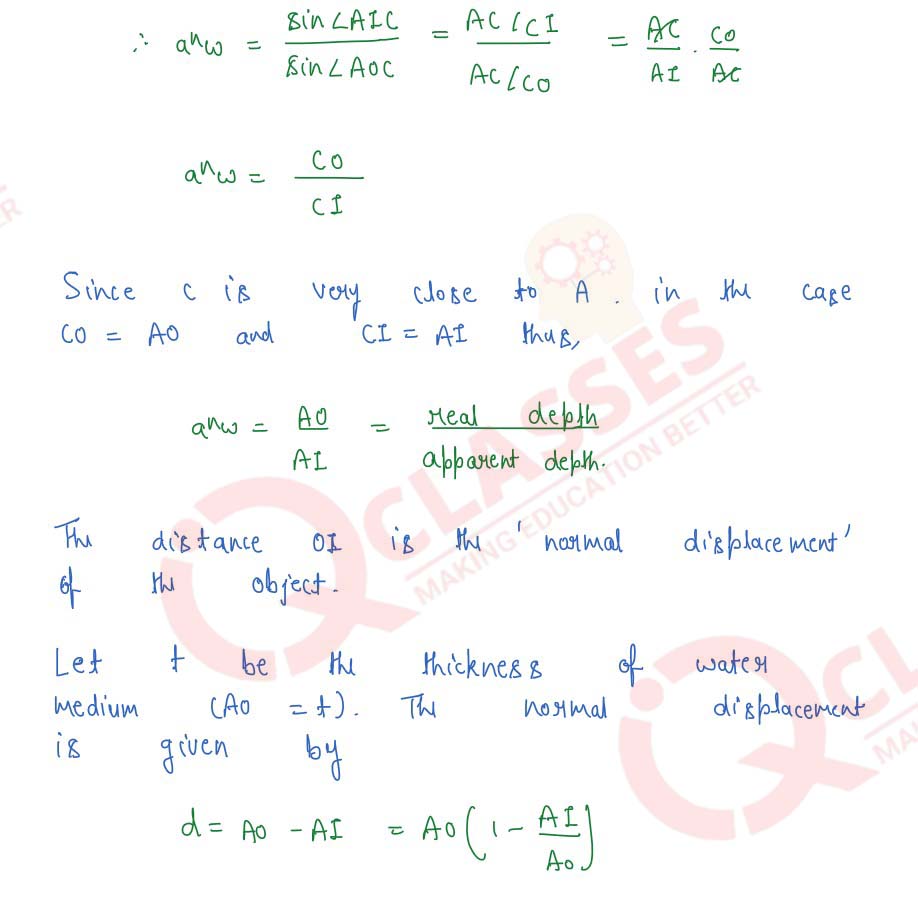 ∴ aⁿω = sin∠AIC / sin∠AOC = AC/CI / AC/CO = AC/AI . CO/AC
aⁿω = CO / CI
Since C is very close to A. in the case
CO = AO and CI = AI thus,
aⁿω = AO / AI = real depth / apparent depth.
The distance OI is the 'normal displacement'
of the object.
Let t be the thickness of water
medium (AO = t). The normal displacement
is given by
d = AO - AI = AO(1 - AI/AO)
CLASSES
MAKING EDUCATION BETTER
CL
MA
ER